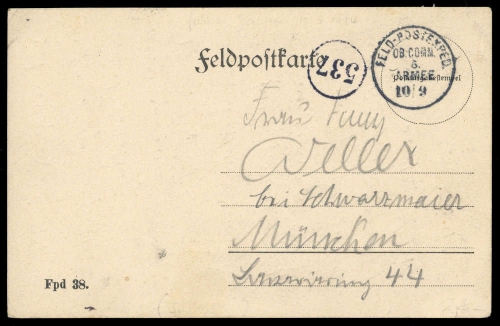 Feldpostkarte
537
FELD-POSTEXPED.
OB.COMM.
6.
ARMEE
10/9
Frau Fanny
Weller
bei Schwarzmaier
München
44
Fpd 38.